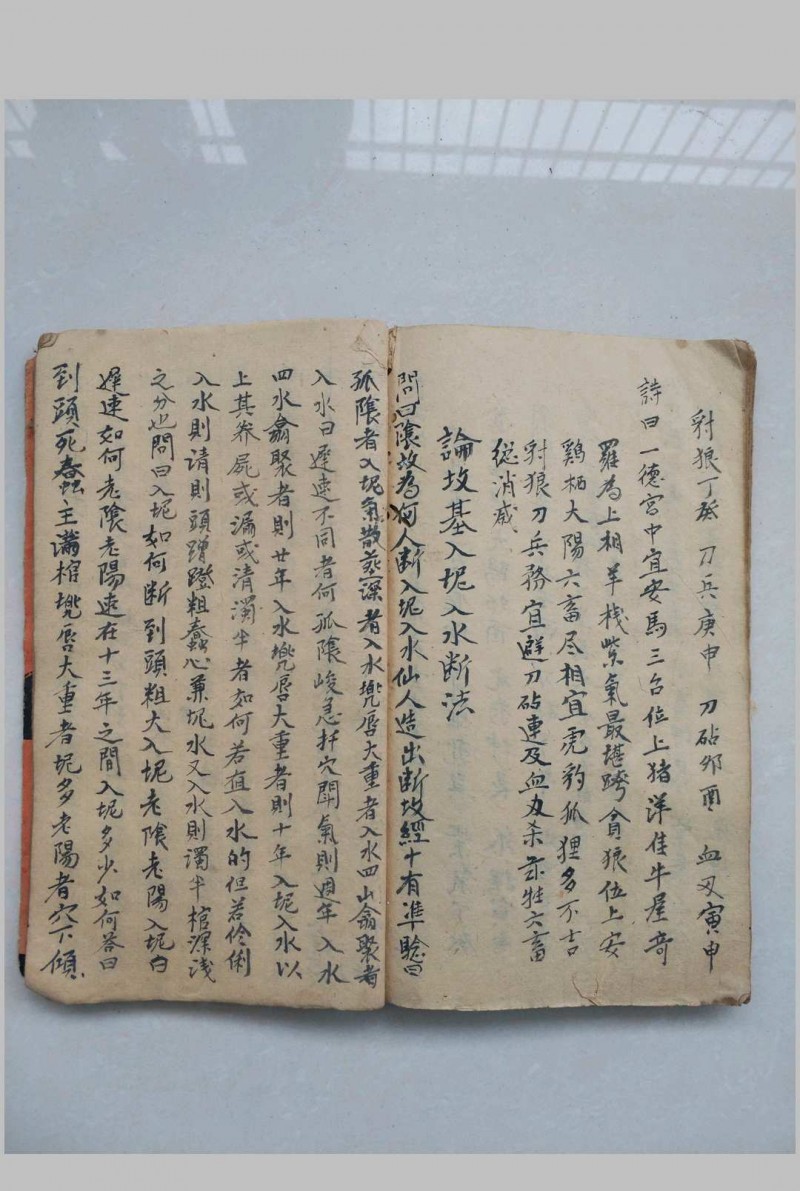 射狼丁癸 刀兵庚申 刀砧卯酉 血刃寅申
詩曰一德宮中宜安馬三台位上猪洋佳牛屋奇
羅為上相羊栈紫氣最堪跨貪狼位上安
鷄栖大陽六畜尽相宜虎豹狐狸多不吉
射狼刀兵務宜避刀砧連及血刃杀并牲六畜
総消减
論坟基入坭入水断法
問曰陰坟為何人断入坭入水仙人造出断坟經十有準驗曰
孤陰者入坭氣散蕊深者入水兠唇大重者入水四山翕聚者
入水曰遲速不同者何孤陰峻急扦穴鬪氣則週年入水
四水翕聚者則廿年入水兠唇大重者則十年入坭入水以
上其养屍或漏或清濁半者如何若直入水的但若伶俐
入水則请則頭蹭蹬粗蠢心兼坭水又入水則濁半棺深浅
之分也問曰入坭如何断到頭粗大入坭老陰老陽入坭曰
遲速如何老陰老陽速在十三年之間入坭多少如何答曰
到頭死蠢主满棺兠唇大重者坭多老陽者穴下傾